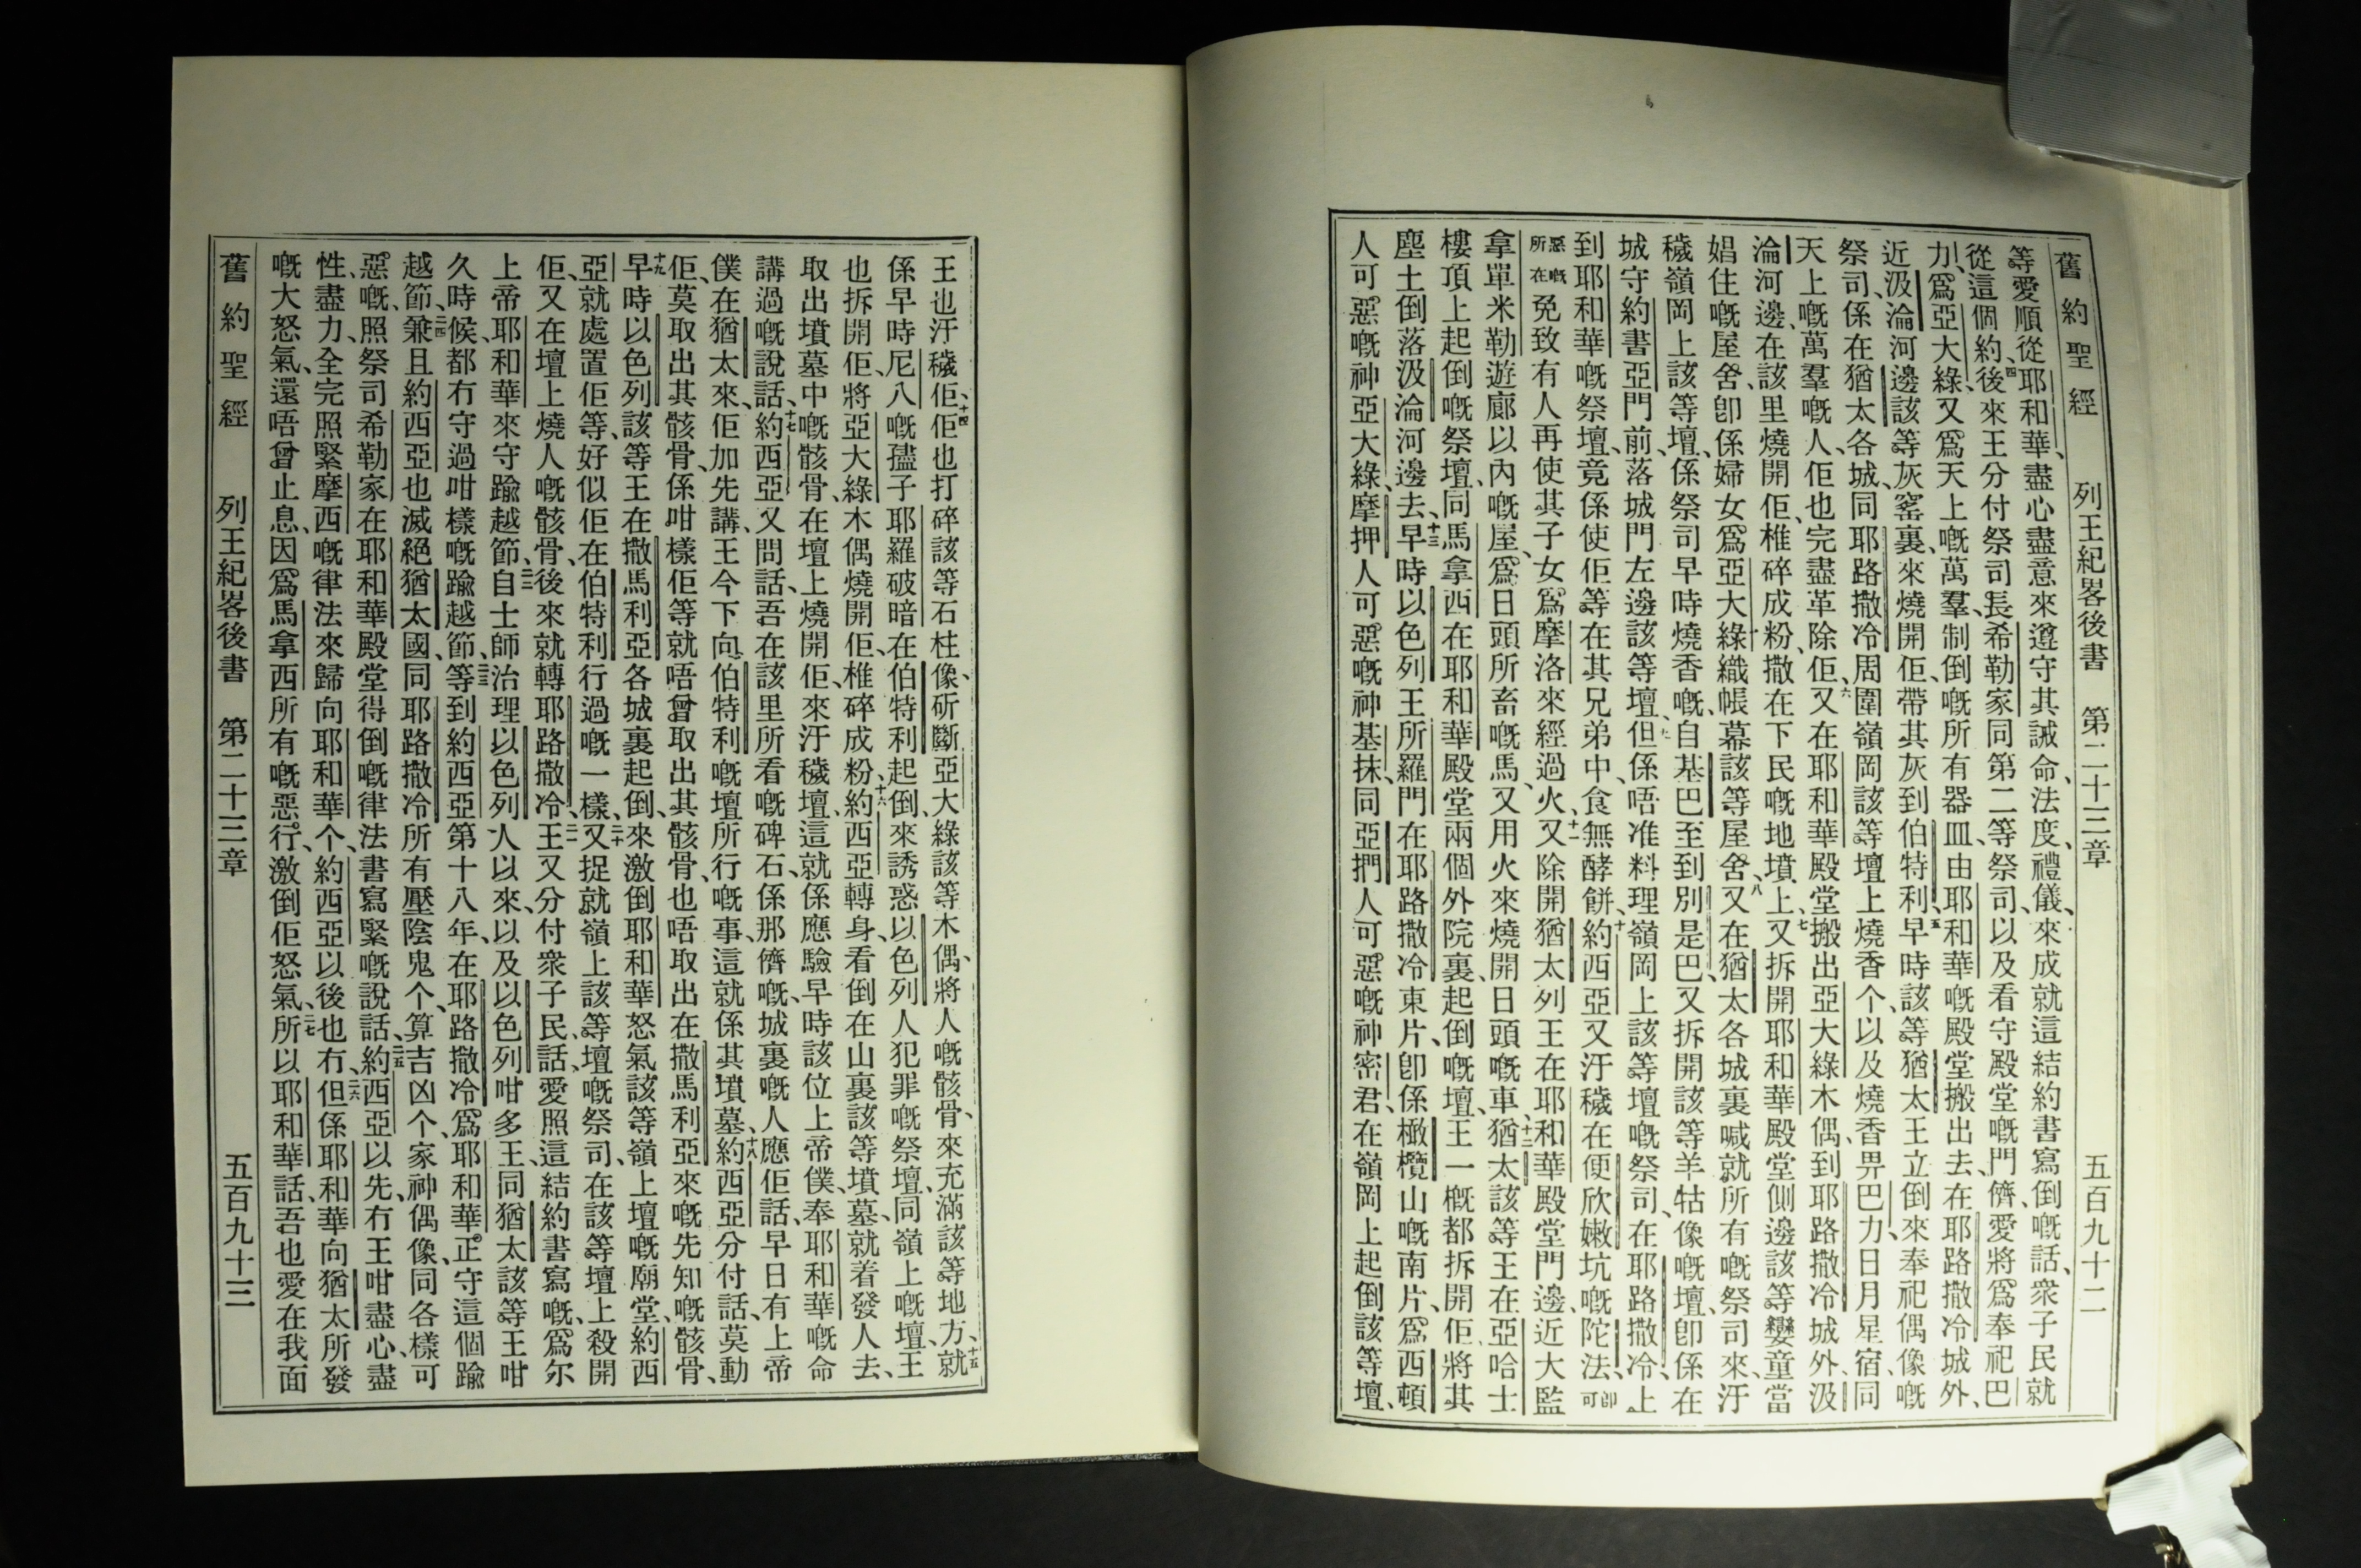 舊約聖經 列王紀畧後書 第二十三章 五百九十二
等愛順從耶和華、盡心盡意來遵守其誡命、法度、禮儀、來成就這結約書寫倒嘅話、衆子民就
從這個約、四後來王分付祭司長希勒家、同第二等祭司、以及看守殿堂嘅門、儕愛將爲奉祀巴
力、爲亞大綠、又爲天上嘅萬羣、制倒嘅所有器皿、由耶和華嘅殿堂搬出去、在耶路撒冷城外、
近汲淪河邊該等灰窰裏、來燒開佢、帶其灰到伯特利、五早時該等猶太王立倒來奉祀偶像嘅
祭司、係在猶太各城、同耶路撒冷周圍嶺岡該等壇上燒香个、以及燒香畀巴力、日月星宿、同
天上嘅萬羣嘅人、佢也完盡革除佢、六又在耶和華殿堂搬出亞大綠木偶、到耶路撒冷城外、汲
淪河邊、在該里燒開佢、椎碎成粉、撒在下民嘅地墳上、七又拆開耶和華殿堂側邊該等孌童當
娼住嘅屋舍、卽係婦女爲亞大綠織帳幕該等屋舍、八又在猶太各城裏喊就所有嘅祭司來、汙
穢嶺岡上該等壇、係祭司早時燒香嘅、自基巴至到別是巴、又拆開該等羊牯像嘅壇、卽係在
城守約書亞門前、落城門左邊該等壇、九但係唔准料理嶺岡上該等壇嘅祭司、在耶路撒冷、上
到耶和華嘅祭壇、竟係使佢等在其兄弟中、食無酵餅、十約西亞又汙穢在便欣嫩坑嘅陀法、卽可
惡嘅所在免致有人再使其子女、爲摩洛來經過火、十一又除開猶太列王在耶和華殿堂門邊、近大監
拿單米勒遊廊以內嘅屋、爲日頭所畜嘅馬、又用火來燒開日頭嘅車、十二猶太該等王、在亞哈士
樓頂上起倒嘅祭壇、同馬拿西在耶和華殿堂兩個外院裏、起倒嘅壇、王一概都拆開佢、將其
塵土倒落汲淪河邊去、十三早時以色列王所羅門在耶路撒冷東片、卽係橄欖山嘅南片、爲西頓
人可惡嘅神亞大綠、摩押人可惡嘅神基抹、同亞捫人可惡嘅神密君、在嶺岡上起倒該等壇、
王也汙穢佢、十四佢也打碎該等石柱像、斫斷亞大綠該等木偶、將人嘅骸骨、來充滿該等地方、十五就
係早時尼八嘅孻子耶羅破暗在伯特利起倒、來誘惑以色列人犯罪嘅祭壇、同嶺上嘅壇、王
也拆開佢、將亞大綠木偶燒開佢、椎碎成粉、十六約西亞轉身、看倒在山裏該等墳墓、就着發人去、
取出墳墓中嘅骸骨、在壇上燒開佢、來汙穢壇、這就係應驗早時該位上帝僕、奉耶和華嘅命
講過嘅說話、十七約西亞又問話、吾在該里所看嘅碑石、係那儕嘅、城裏嘅人應佢話、早日有上帝
僕在猶太來、佢加先講、王今下向伯特利嘅壇所行嘅事、這就係其墳墓、十八約西亞分付話、莫動
佢、莫取出其骸骨、係咁樣佢等就唔曾取出其骸骨、也唔取出在撒馬利亞來嘅先知嘅骸骨、
十九早時以色列該等王在撒馬利亞各城裏起倒、來激倒耶和華怒氣該等嶺上壇嘅廟堂、約西
亞就處置佢等、好似佢在伯特利行過嘅一樣、二十又捉就嶺上該等壇嘅祭司、在該等壇上殺開
佢、又在壇上燒人嘅骸骨、後來就轉耶路撒冷、二一王又分付衆子民話、愛照這結約書寫嘅、爲尔
上帝耶和華來守踰越節、二二自士師治理以色列人以來、以及以色列咁多王、同猶太該等王、咁
久時候、都冇守過咁樣嘅踰越節、二三等到約西亞第十八年、在耶路撒冷、爲耶和華正守這個踰
越節、二四兼且約西亞也滅絕猶太國、同耶路撒冷所有壓陰鬼个、算吉凶个、家神偶像、同各樣可
惡嘅、照祭司希勒家在耶和華殿堂得倒嘅律法書寫緊嘅說話、二五約西亞以先、冇王咁盡心、盡
性、盡力、全完照緊摩西嘅律法來歸向耶和華个、約西亞以後也冇、二六但係耶和華向猶太所發
嘅大怒氣、還唔曾止息、因爲馬拿西所有嘅惡行、激倒佢怒氣、二七所以耶和華話、吾也愛在我面
舊約聖經 列王紀畧後書 第二十三章 五百九十三